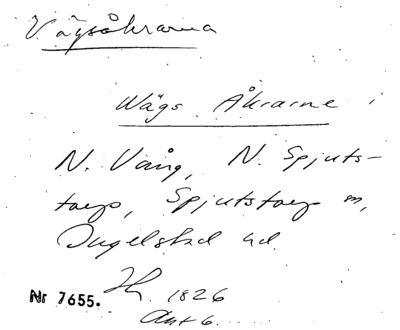 Vägsåkrarna
Wägs Åkrarne i
N. Vång, N. Spjuts-
torp, Spjutstorp sn,
Ingelstad hd
Nr 7655.
1826
Akt 6